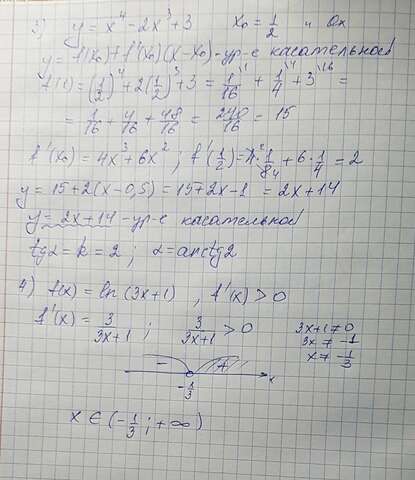 3) y = x⁴ - 2x³ + 3   x₀ = 1/2   и Ox
y = f(x₀) + f'(x₀)(x - x₀) - ур-е касательной
f(1) = (1/2)⁴ + 2(1/2)³ + 3 = 1/16 \1 + 1/4 \4 + 3 \16 =
= 1/16 + 4/16 + 48/16 = 240/16 = 15
f'(x₀) = 4x³ + 6x²; f'(1/2) = 4·1/8 + 6·1/4 = 2
y = 15 + 2(x - 0,5) = 15 + 2x - 1 = 2x + 14
y = 2x + 14 - ур-е касательной
tgα = k = 2; α = arctg2
4) f(x) = ln(3x+1), f'(x) > 0
f'(x) = 3/(3x+1); 3/(3x+1) > 0
3x+1 ≠ 0
3x ≠ -1
x ≠ -1/3
- +
-1/3 x
x ∈ (-1/3; +∞)